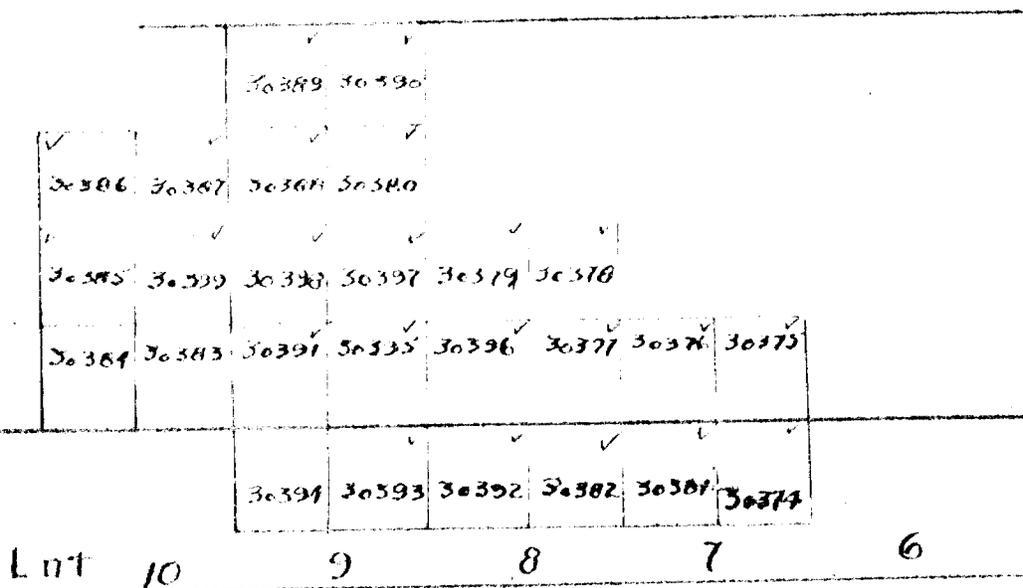 30389 30390
30386 30387 30388 30380
30385 30399 30398 30397 30379 30378
30384 30383 30391 30395 30396 30377 30376 30375
30394 30393 30392 30382 30381 30374
Lot 10 9 8 7 6